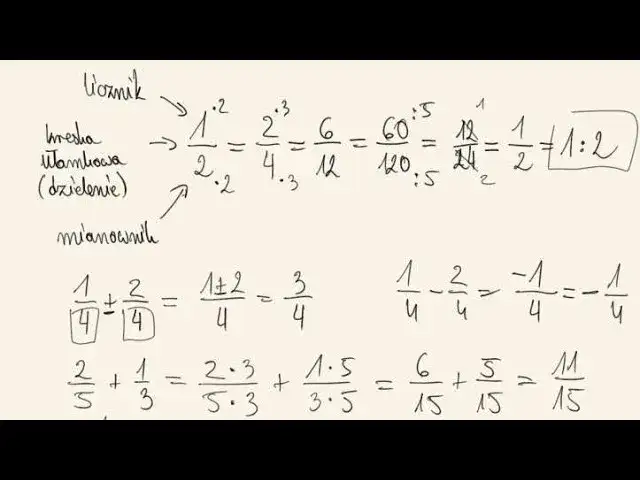 licznik
kreska
ułamkowa
(dzielenie)
mianownik
1·2/2·2 = 2·3/4·3 = 6/12 = 60:5/120:5 = 12/24 1/2 = 1/2 = 1:2
1/4 ± 2/4 = 1±2/4 = 3/4
1/4 - 2/4 = -1/4 = -1/4
2/5 + 1/3 = 2·3/5·3 + 1·5/3·5 = 6/15 + 5/15 = 11/15